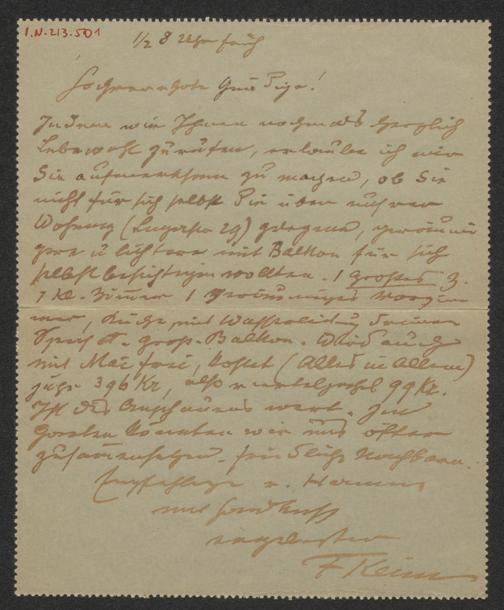 I.N. 213.501
1/2 8 Uhr früh
Hochverehrte !
Indem wir Ihnen nochmals herzlich
Lebewohl zurufen, erlaube ich mir
Sie aufmerksam zu machen, ob Sie
nicht für sich selbst die über unserer
Wohnung ( 29) gelegene,
u lichtere mit Balkon für sich
selbst besichtigen wollten. 1 großes Z.
1 kl. Zimmer 1 geräumiges
, Küche mit Wasserleitung
groß. Balkon. Wird auch
mit Mai frei, kostet (Alles in Allem)
jährl 396 Kr, also vierteljährl 99 Kr.
Ist des Anschauens wert. Im
Garten könnten wir uns öfter
zusammensetzen. friedliche Nachbarn.
mit Handkuss
ergebenster
F Keim